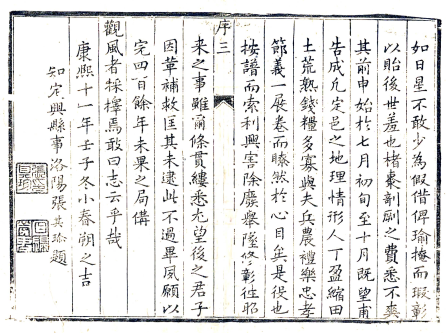 如日星不敢少為假借俾瑜掩而瑕彰
以貽後世羞也楮棗剞劂之費悉不爽
其前申始於七月初旬至十月既望甫
告成凡定邑之地理情形人丁盈縮田
土荒熟錢糧多寡與夫兵農禮樂忠孝
節義一展卷而瞭然於心目矣是役也
按譜而索利興害除廢舉墜修彰往昭
序 三
來之事雖爾條貫縷悉尤望後之君子
因革補救匡其未逮此不過畢夙願以
完四百餘年未果之局倘
觀風者採擇焉敢曰志云乎哉
康熙十一年壬子冬小春朔之吉
知定興縣事洛陽張其珍題